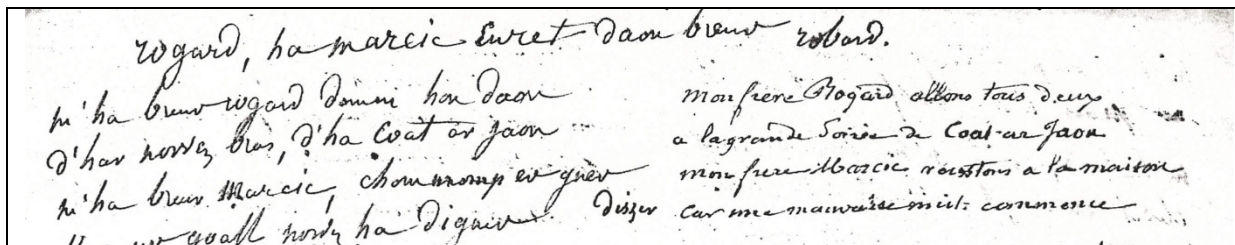 rogard, ha marcic Euret daou breur robard.
hi' ha breur rogard domni hon daou
d'har nossez bras, d'ha Coat ar jaou
hi' ha breur Marcic, chommomp er guer
goall nossez ha diguer
mon frere Rogard allons tous deux
a la grande Soirée de Coat-ar Jaou
mon frere Marcic restons a la maison
car une mauvaise nuit commence